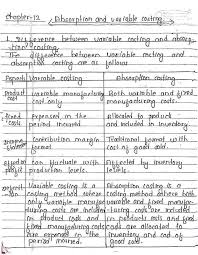 Chapter-12
Absorption and variable costing
1. Difference between variable costing and absorp-
tion costing.
The difference between variable costing and
absorption costing are as follows
Variable costing Absorption costing
Product cost Variable manufacturing cost only Both variable and fixed manufacturing costs.
Fixed costs Expensed in the period incurred Allocated to product and included in inventory
Contribution margin format Traditional format with cost of good sold.
Can fluctuate with production levels. Affected by inventory levels.
Variable costing is a costing method where only variable manufacturing costs are included in product cost and fixed manufacturing costs are expensed in the period incurred.
Absorption costing is a costing method where both variable and fixed manufacturing costs are included in product costs and fixed costs are allocated to inventory and cost of good sold.